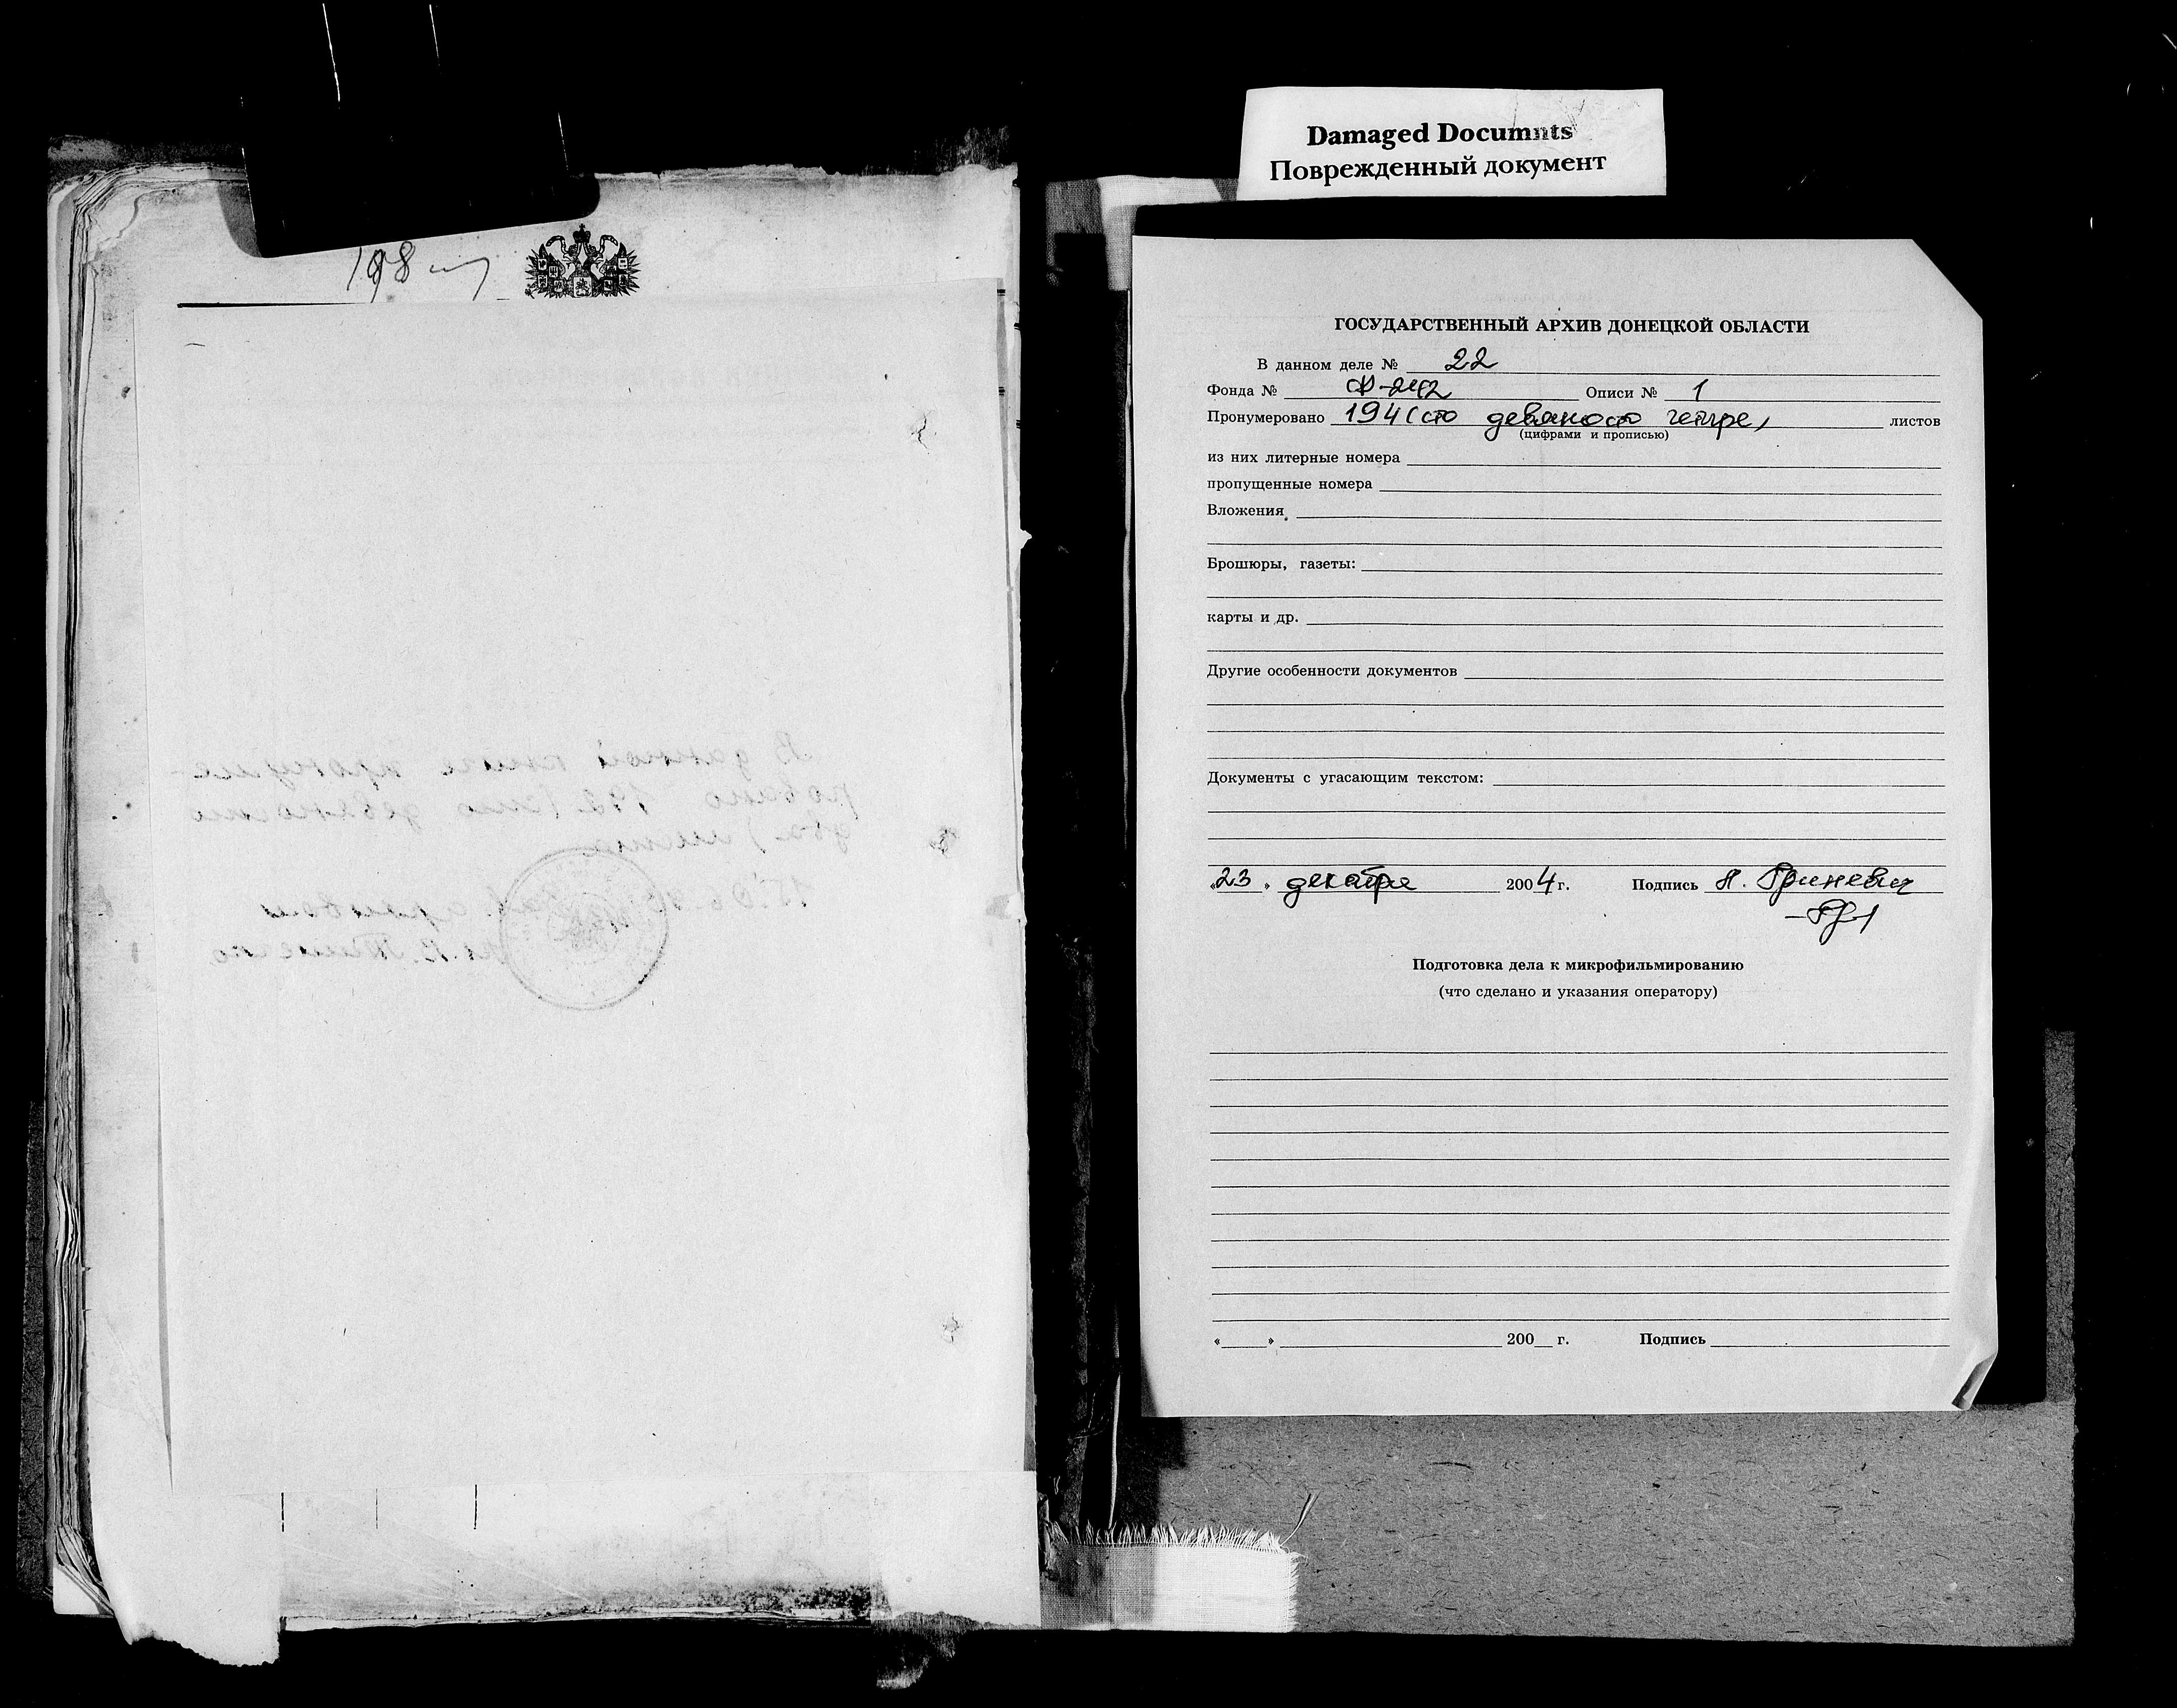 Damaged Documnts
Поврежденный документ
198
ГОСУДАРСТВЕННЫЙ АРХИВ ДОНЕЦКОЙ ОБЛАСТИ
В данном деле № 22
Фонда № Описи № 1
Пронумеровано 194 (сто девяносто четыре) листов
(цифрами и прописью)
из них литерные номера
пропущенные номера
Вложения
Брошюры, газеты:
карты и др.
Другие особенности документов
Документы с угасающим текстом:
«23» декабря 2004 г. Подпись Гриневич
Подготовка дела к микрофильмированию
(что сделано и указания оператору)
« » 200 г. Подпись
В данной книге пронуме-
ровано 192 (сто девяносто
два) листа
15.06.